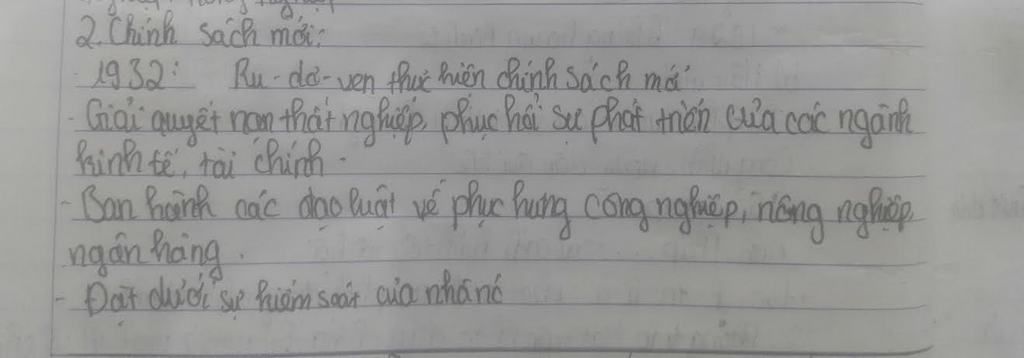 2. Chính sách mới:
- 1932: Ru-dơ-ven thực hiện chính sách mới
- Giải quyết nạn thất nghiệp, phục hồi sự phát triển của các ngành
kinh tế, tài chính.
- Ban hành các đạo luật về phục hưng công nghiệp, nông nghiệp,
ngân hàng.
- Đặt dưới sự kiểm soát của nhà nc